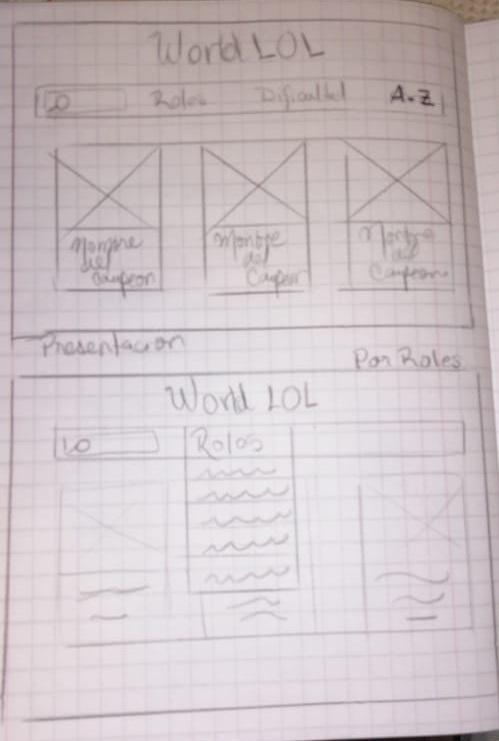 World LOL
Roles Dificultad A-Z
Nombre del Campeon
Nombre del Campeon
Nombre del Campeon
Presentacion
Por Roles
World LOL
Roles